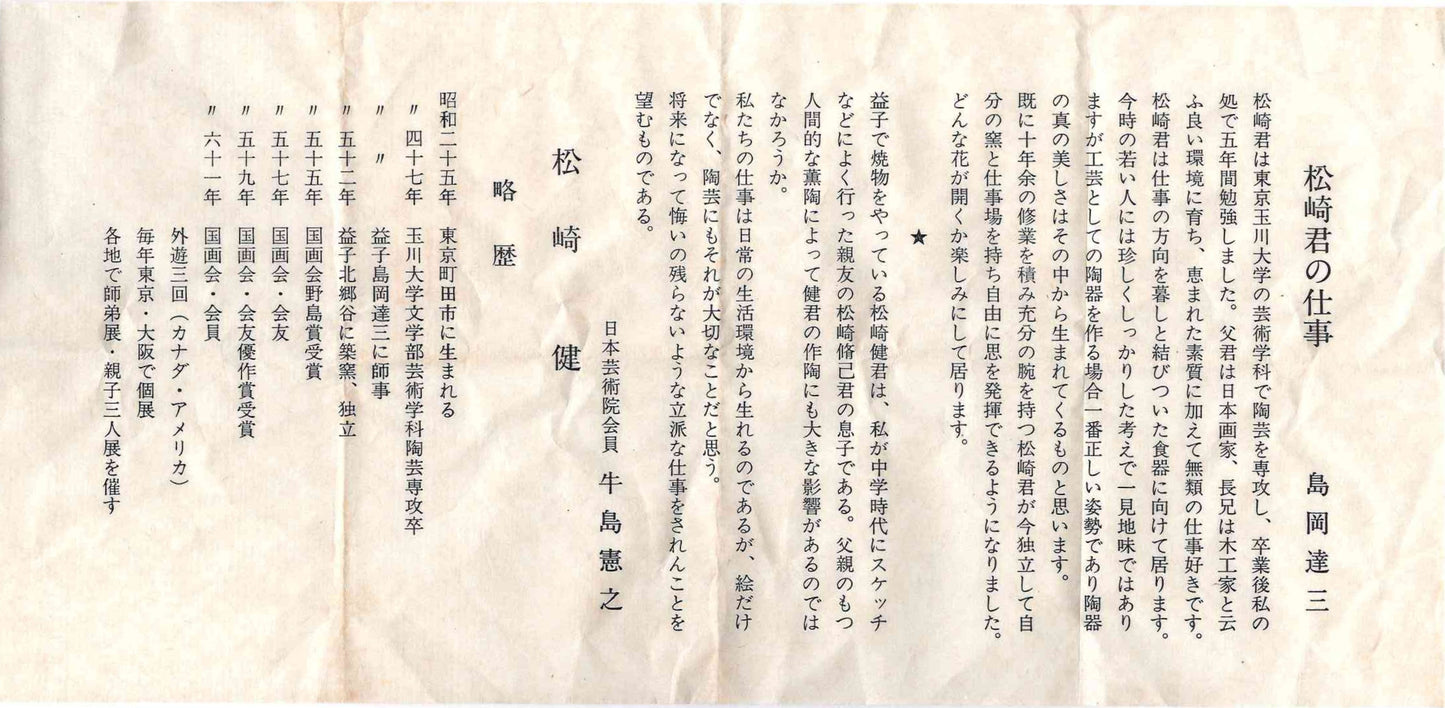 松崎君の仕事　島岡達三
松崎君は東京玉川大学の芸術学科で陶芸を専攻し、卒業後私の
処で五年間勉強しました。父君は日本画家、長兄は木工家と云
ふ良い環境に育ち、恵まれた素質に加えて無類の仕事好きです。
松崎君は仕事の方向を暮しと結びついた食器に向けて居ります。
今時の若い人には珍しくしっかりした考えで一見地味ではあり
ますが工芸としての陶器を作る場合一番正しい姿勢であり陶器
の真の美しさはその中から生まれてくるものと思います。
既に十年余の修業を積み充分の腕を持つ松崎君が今独立して自
分の窯と仕事場を持ち自由に思を発揮できるようになりました。
どんな花が開くか楽しみにして居ります。
★
益子で焼物をやっている松崎健君は、私が中学時代にスケッチ
などによく行った親友の松崎脩己君の息子である。父親のもつ
人間的な薫陶によって健君の作陶にも大きな影響があるのでは
なかろうか。
私たちの仕事は日常の生活環境から生れるのであるが、絵だけ
でなく、陶芸にもそれが大切なことだと思う。
将来になって悔いの残らないような立派な仕事をされんことを
望むものである。
日本芸術院会員　牛島憲之
松崎　健
略歴
昭和二十五年　東京町田市に生まれる
〃 四十七年　玉川大学文学部芸術学科陶芸専攻卒
〃　〃　益子島岡達三に師事
〃 五十二年　益子北郷谷に築窯、独立
〃 五十五年　国画会野島賞受賞
〃 五十七年　国画会・会友
〃 五十九年　国画会・会友優作賞受賞
〃 六十一年　国画会・会員
外遊三回（カナダ・アメリカ）
毎年東京・大阪で個展
各地で師弟展・親子三人展を催す